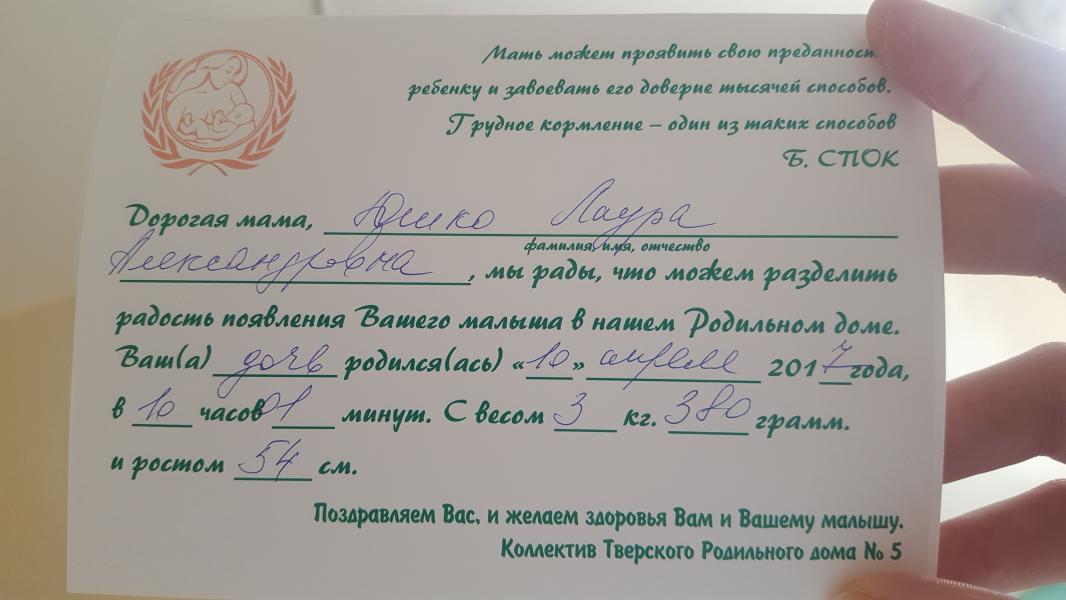 Мать может проявить свою преданность
ребенку и завоевать его доверие тысячей способов.
Грудное кормление – один из таких способов
Б. СПОК
Дорогая мама, Юшко Лаура
фамилия, имя, отчество
Александровна, мы рады, что можем разделить
радость появления Вашего малыша в нашем Родильном доме.
Ваш(а) дочь родился(ась) «10» апреля 2017 года,
в 10 часов 01 минут. С весом 3 кг. 380 грамм.
и ростом 54 см.
Поздравляем Вас, и желаем здоровья Вам и Вашему малышу.
Коллектив Тверского Родильного дома № 5